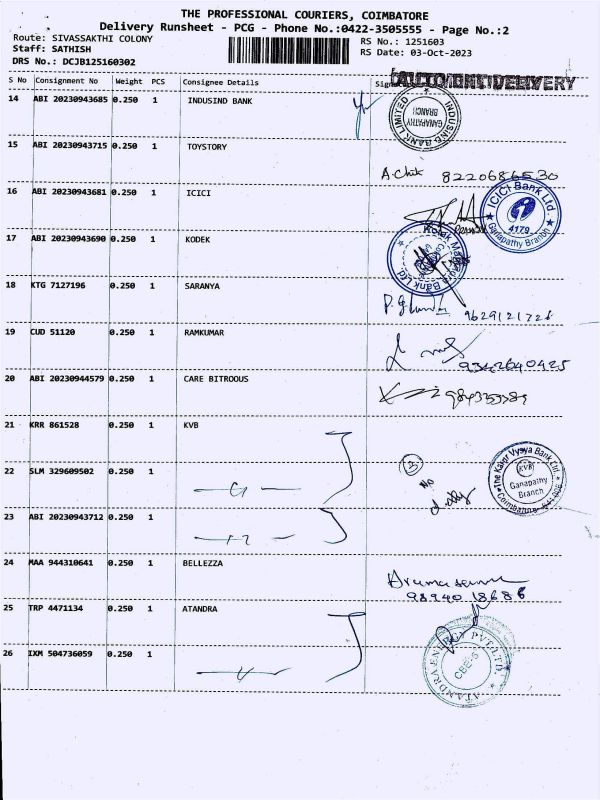 THE PROFESSIONAL COURIERS, COIMBATORE
Delivery Runsheet - PCG - Phone No.:0422-3505555 - Page No.:2
Route: SIVASSAKTHI COLONY
RS No.: 1251603
Staff: SATHISH
RS Date: 03-Oct-2023
DRS No.: DCJB125160302
S No Consignment No Weight PCS Consignee Details
14 ABI 20230943685 0.250 1 INDUSIND BANK
INDUSIND BANK LIMITED GANAPATHY BRANCH
15 ABI 20230943715 0.250 1 TOYSTORY
16 ABI 20230943681 0.250 1 ICICI
ICICI Bank Ltd. 4179 Ganapathy Branch
17 ABI 20230943690 0.250 1 KODEK
Kotak Mahindra Bank Ltd
18 KTG 7127196 0.250 1 SARANYA
19 CUD 51120 0.250 1 RAMKUMAR
9342640425
20 ABI 20230944579 0.250 1 CARE BITROOUS
21 KRR 861528 0.250 1 KVB
The Karur Vysya Bank Ltd. KVB Ganapathy Branch
22 SLM 329609502 0.250 1
3
23 ABI 20230943712 0.250 1
24 MAA 944310641 0.250 1 BELLEZZA
98940 18686
25 TRP 4471134 0.250 1 ATANDRA
ATANDRA ENERGY PVT. LTD. CBE-6
26 IXM 504736059 0.250 1